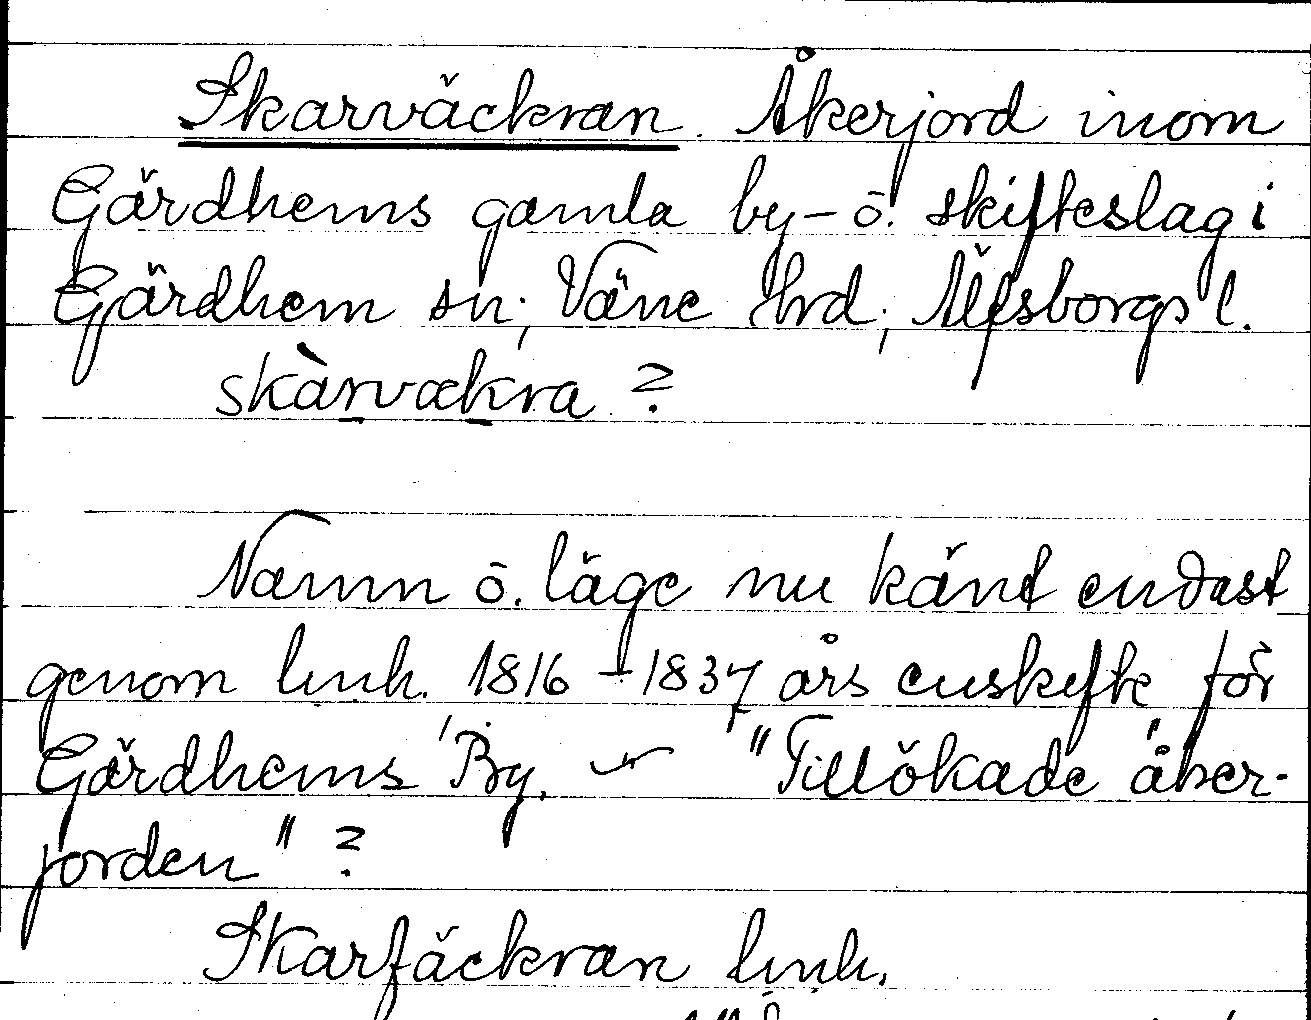 Skarväckran. Åkerjord inom
Gärdhems gamla by- o. skifteslag i
Gärdhem sn, Väne hrd, Älfsborgs l.
skàrvækra ?
Namn o. läge nu känt endast
genom lmh. 1816 – 1837 års enskifte för
Gärdhems By. "Tillökade åker-
jorden" ?
Skarfäckran lmh.